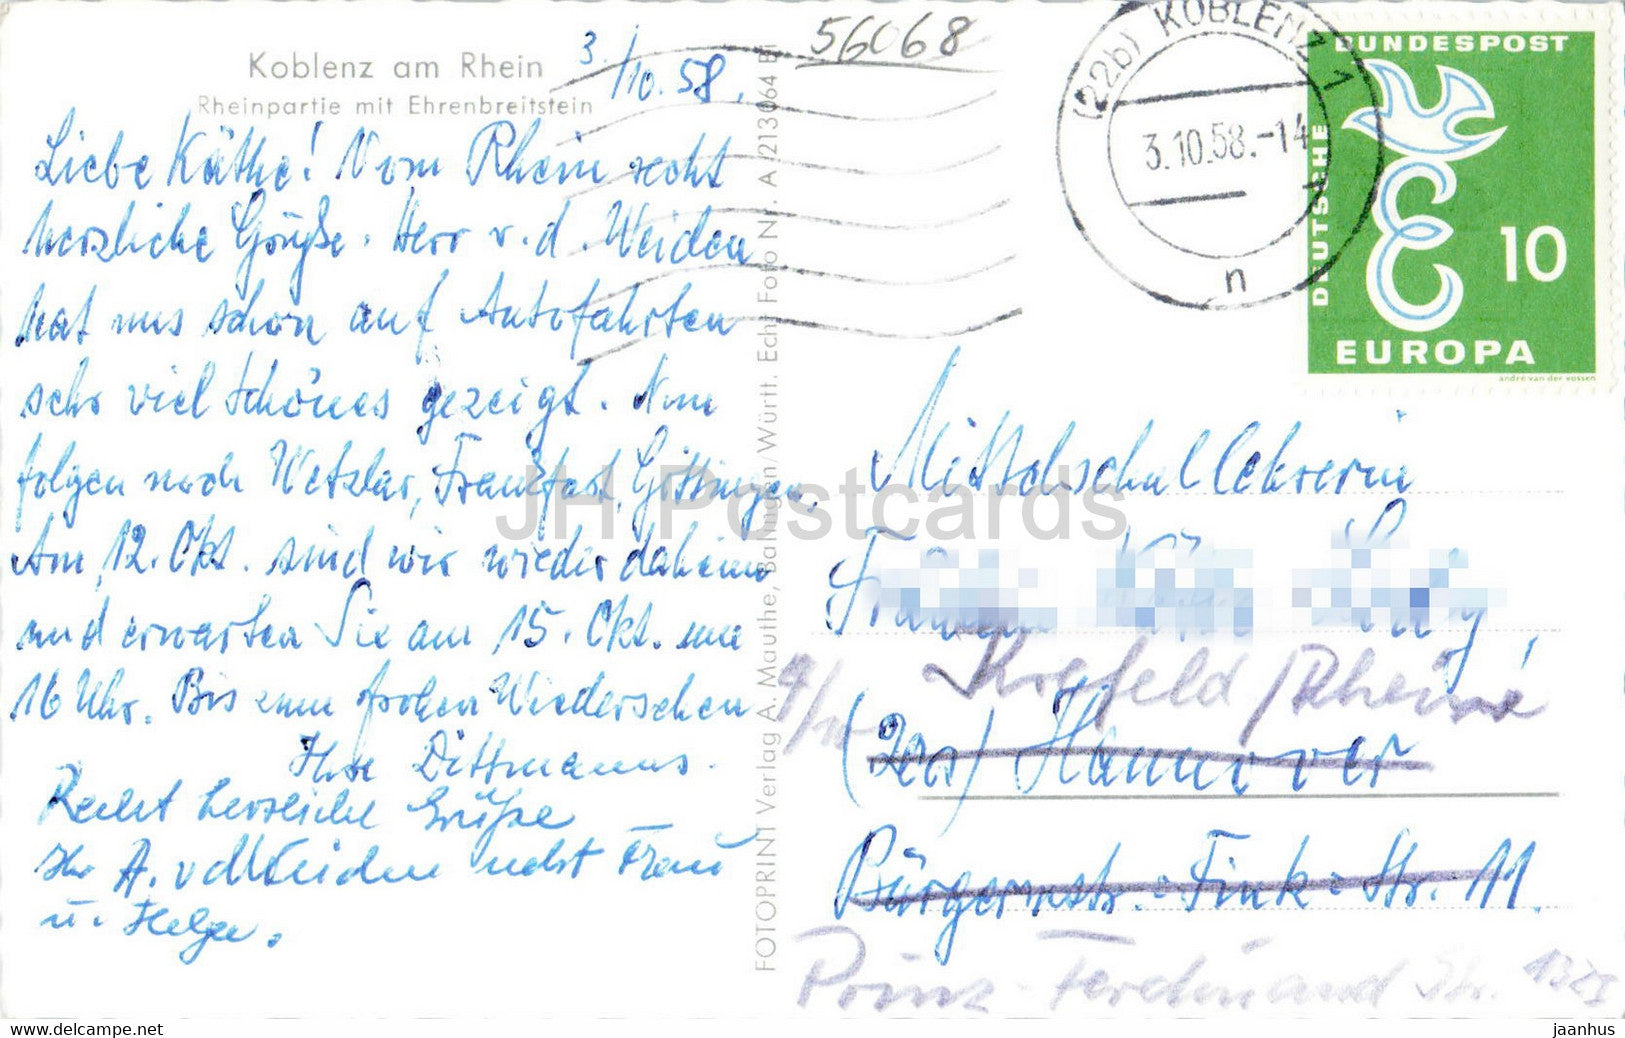 Koblenz am Rhein
Rheinpartie mit Ehrenbreitstein
3./10.58.
Liebe Käthe! Vom Rhein recht
herzliche Grüße. Herr v. d. Weiden
hat uns schon auf Autofahrten
sehr viel Schönes gezeigt. Nun
folgen noch Wetzlar, Frankfurt, Göttingen.
Am 12. Okt. sind wir wieder daheim
und erwarten Sie am 15. Okt. um
16 Uhr. Bis zum frohen Wiedersehen
Ihre Dittmanns.
Recht herzliche Grüße
Ihr A. v d Weiden nebst Frau
u. Helga.
FOTOPRINT Verlag A. Mauthe, Balingen/Württ. Echt Foto Nr. A/213064 Bl
56068
(22b) KOBLENZ 1
3.10.58.-14
n
DEUTSCHE
BUNDESPOST
10
EUROPA
andré van der vossen
Mittelschullehrerin
Krefeld/Rhein
Hannover
Bürgermstr.-Fink-Str. 11.
Prinz-Ferdinand Str.
JH Postcards
www.delcampe.net
jaanhus